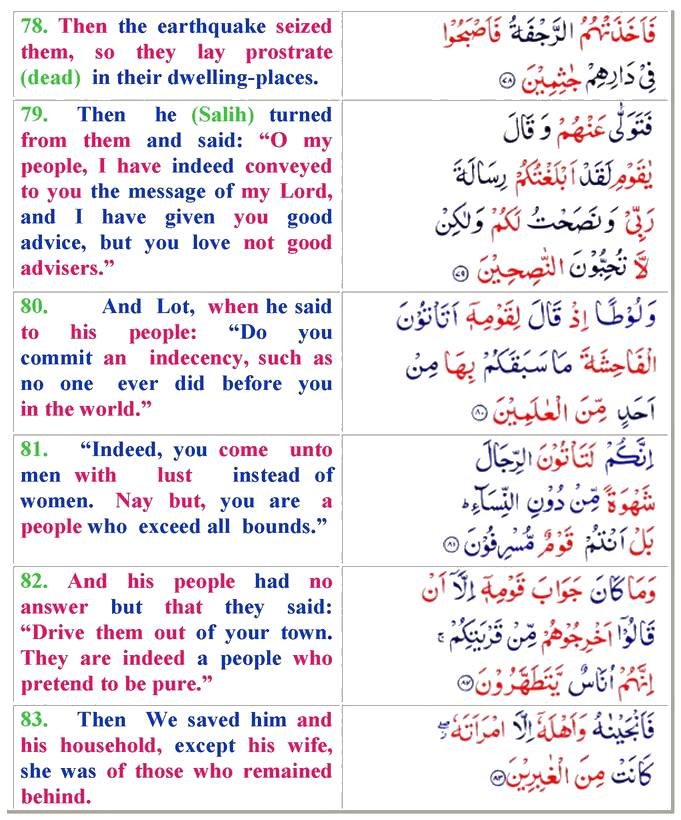 78. Then the earthquake seized
them, so they lay prostrate
(dead) in their dwelling-places.
فَاَخَذَتْهُمُ الرَّجْفَةُ فَاَصْبَحُوْا
فِيْ دَارِهِمْ جٰثِمِيْنَ ﴿۷۸﴾
79. Then he (Salih) turned
from them and said: “O my
people, I have indeed conveyed
to you the message of my Lord,
and I have given you good
advice, but you love not good
advisers.”
فَتَوَلّٰى عَنْهُمْ وَ قَالَ
يٰقَوْمِ لَقَدْ اَبْلَغْتُكُمْ رِسَالَةَ
رَبِّيْ وَ نَصَحْتُ لَكُمْ وَلٰكِنْ
لَّا تُحِبُّوْنَ النّٰصِحِيْنَ ﴿۷۹﴾
80. And Lot, when he said
to his people: “Do you
commit an indecency, such as
no one ever did before you
in the world.”
وَ لُوْطًا اِذْ قَالَ لِقَوْمِهٖۤ اَتَاْتُوْنَ
الْفَاحِشَةَ مَا سَبَقَكُمْ بِهَا مِنْ
اَحَدٍ مِّنَ الْعٰلَمِيْنَ ﴿۸۰﴾
81. “Indeed, you come unto
men with lust instead of
women. Nay but, you are a
people who exceed all bounds.”
اِنَّكُمْ لَتَاْتُوْنَ الرِّجَالَ
شَهْوَةً مِّنْ دُوْنِ النِّسَآءِ ؕ
بَلْ اَنْتُمْ قَوْمٌ مُّسْرِفُوْنَ ﴿۸۱﴾
82. And his people had no
answer but that they said:
“Drive them out of your town.
They are indeed a people who
pretend to be pure.”
وَمَا كَانَ جَوَابَ قَوْمِهٖۤ اِلَّاۤ اَنْ
قَالُوْۤا اَخْرِجُوْهُمْ مِّنْ قَرْيَتِكُمْ ۚ
اِنَّهُمْ اُنَاسٌ يَّتَطَهَّرُوْنَ ﴿۸۲﴾
83. Then We saved him and
his household, except his wife,
she was of those who remained
behind.
فَاَنْجَيْنٰهُ وَاَهْلَهٗۤ اِلَّا امْرَاَتَهٗ ۖ٘
كَانَتْ مِنَ الْغٰبِرِيْنَ ﴿۸۳﴾